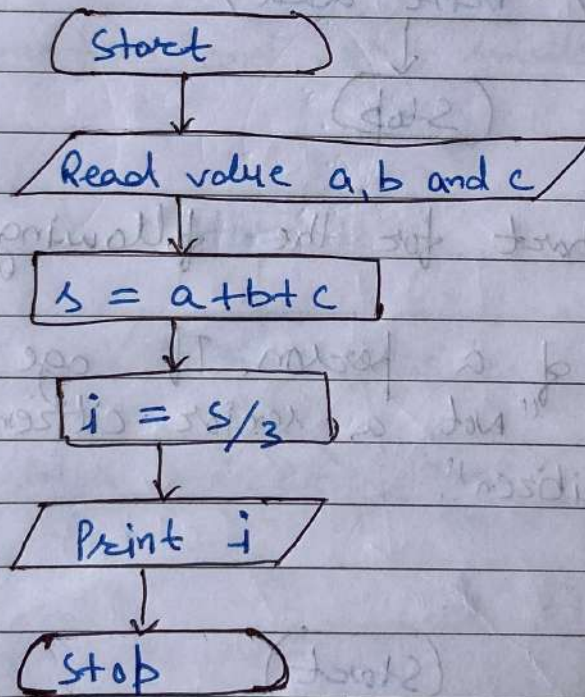 Start
Read value a, b and c
s = a+b+c
i = s/3
Print i
Stop